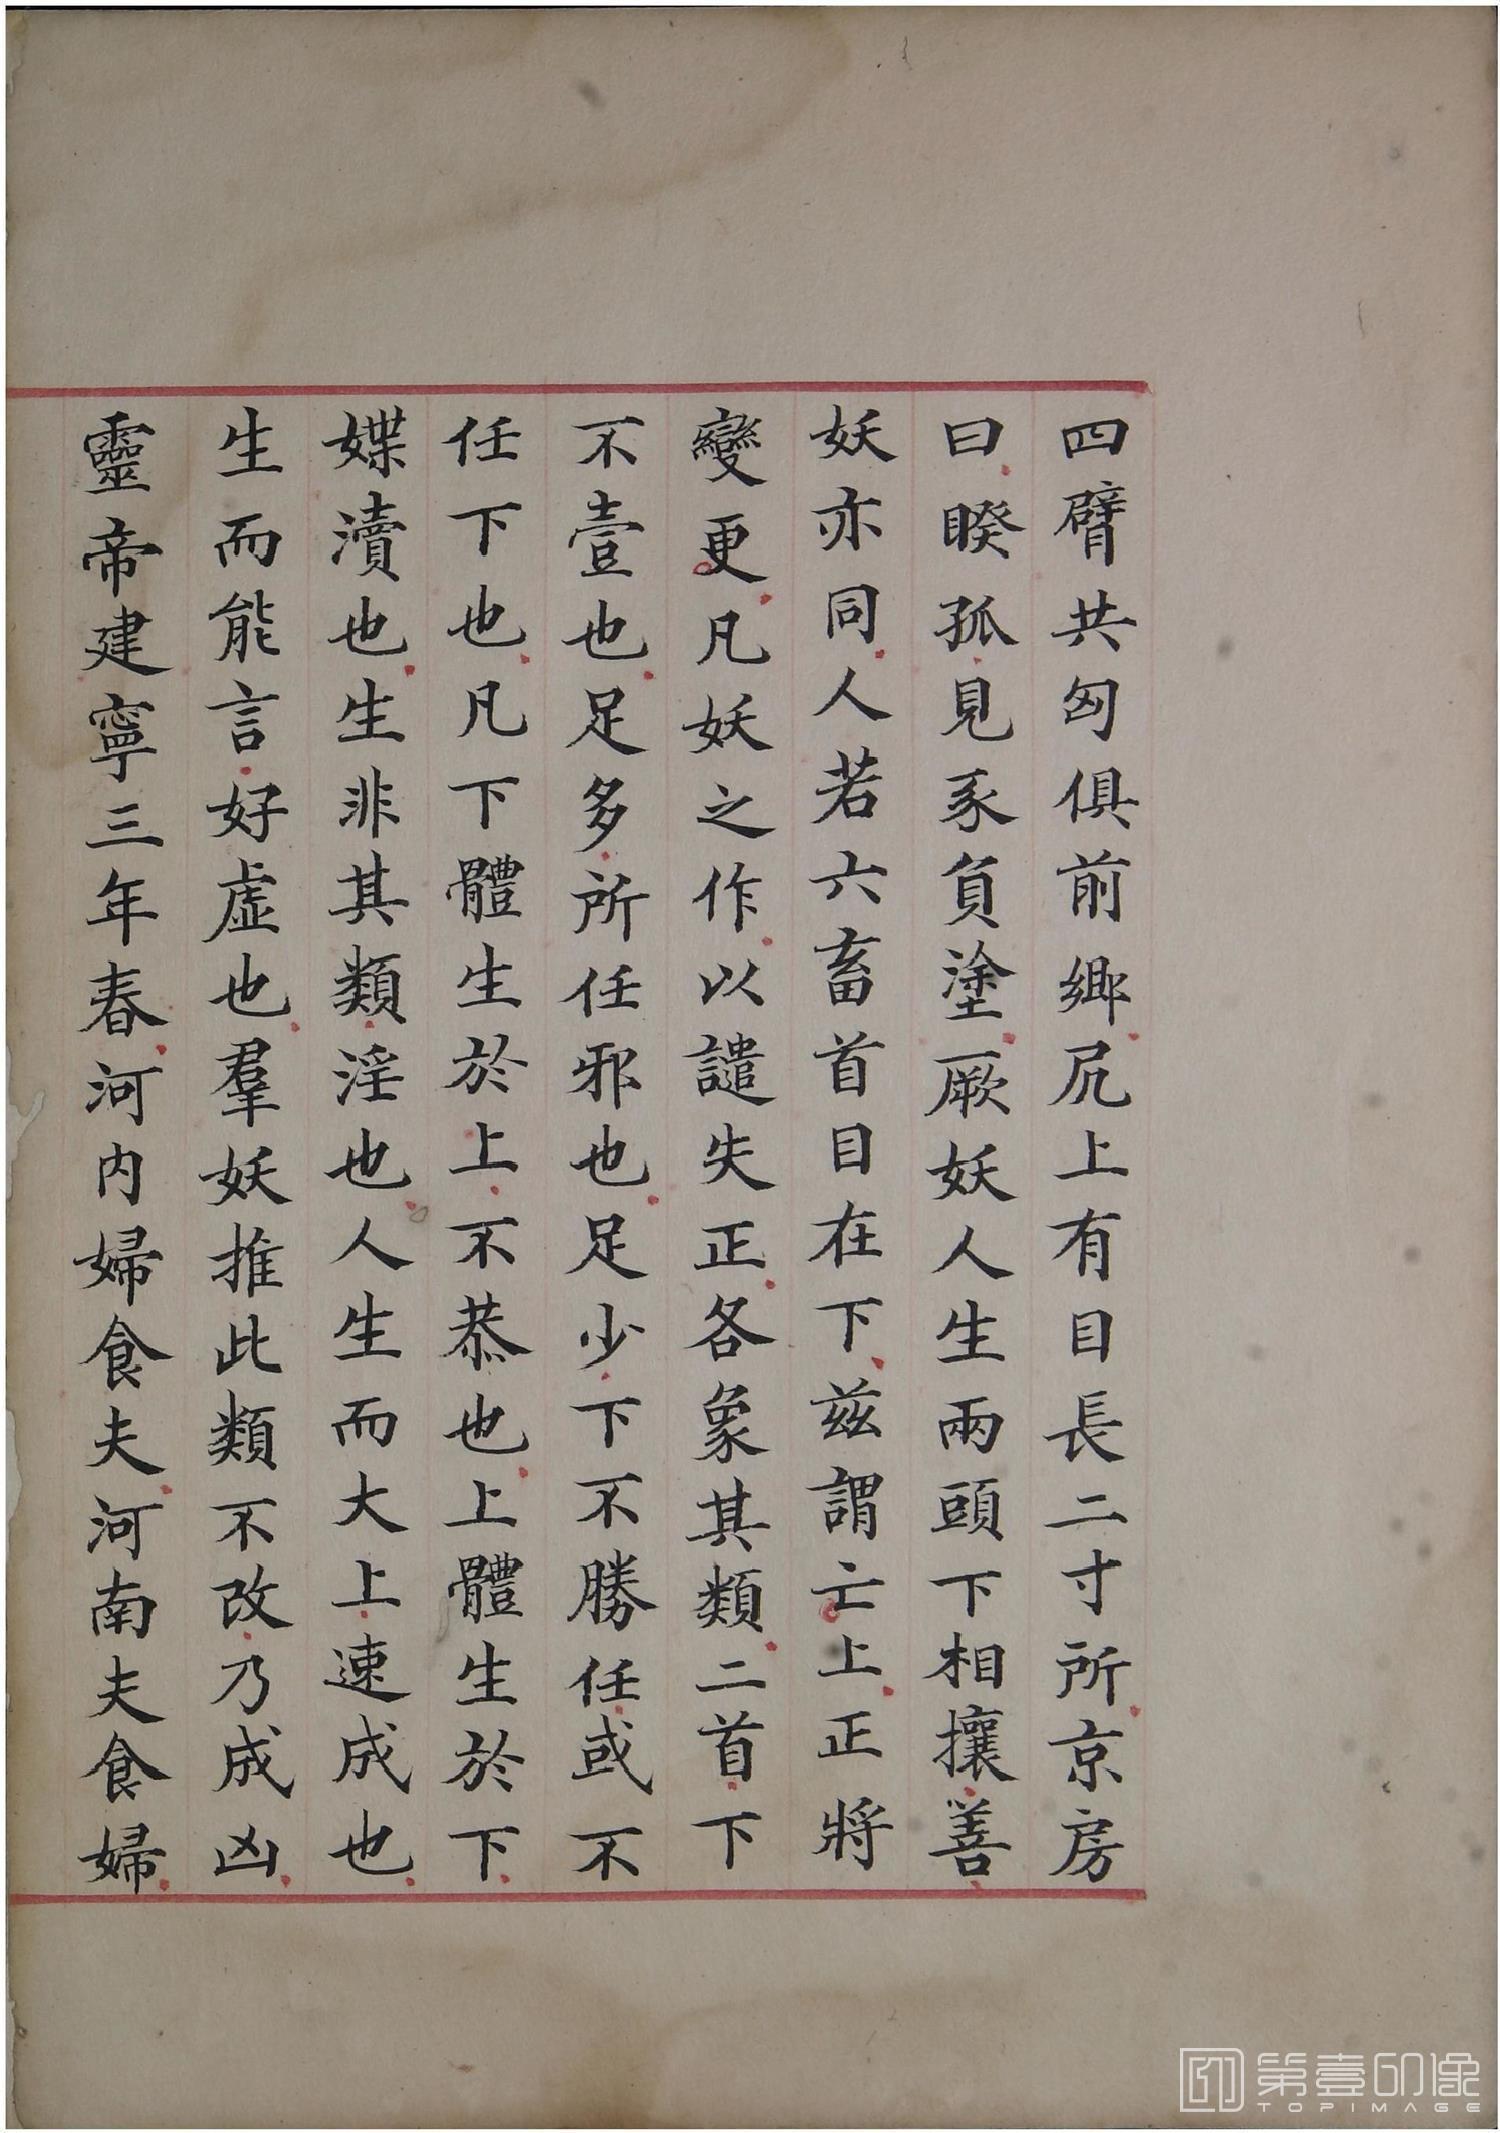 四臂共匈俱前鄉尻上有目長二寸所京房
曰睽孤見豕負塗厥妖人生兩頭下相攘善
妖亦同人若六畜首目在下兹謂亡上正將
變更凡妖之作以譴失正各象其類二首下
不壹也足多所任邪也足少下不勝任或不
任下也凡下體生於上不恭也上體生於下
媟瀆也生非其類淫也人生而大上速成也
生而能言好虛也羣妖推此類不改乃成凶
靈帝建寧三年春河內婦食夫河南夫食婦
第壹印像
TOPIMAGE